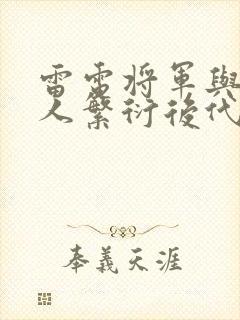 雷雷将軍與
人繁衍後代
奉義天涯